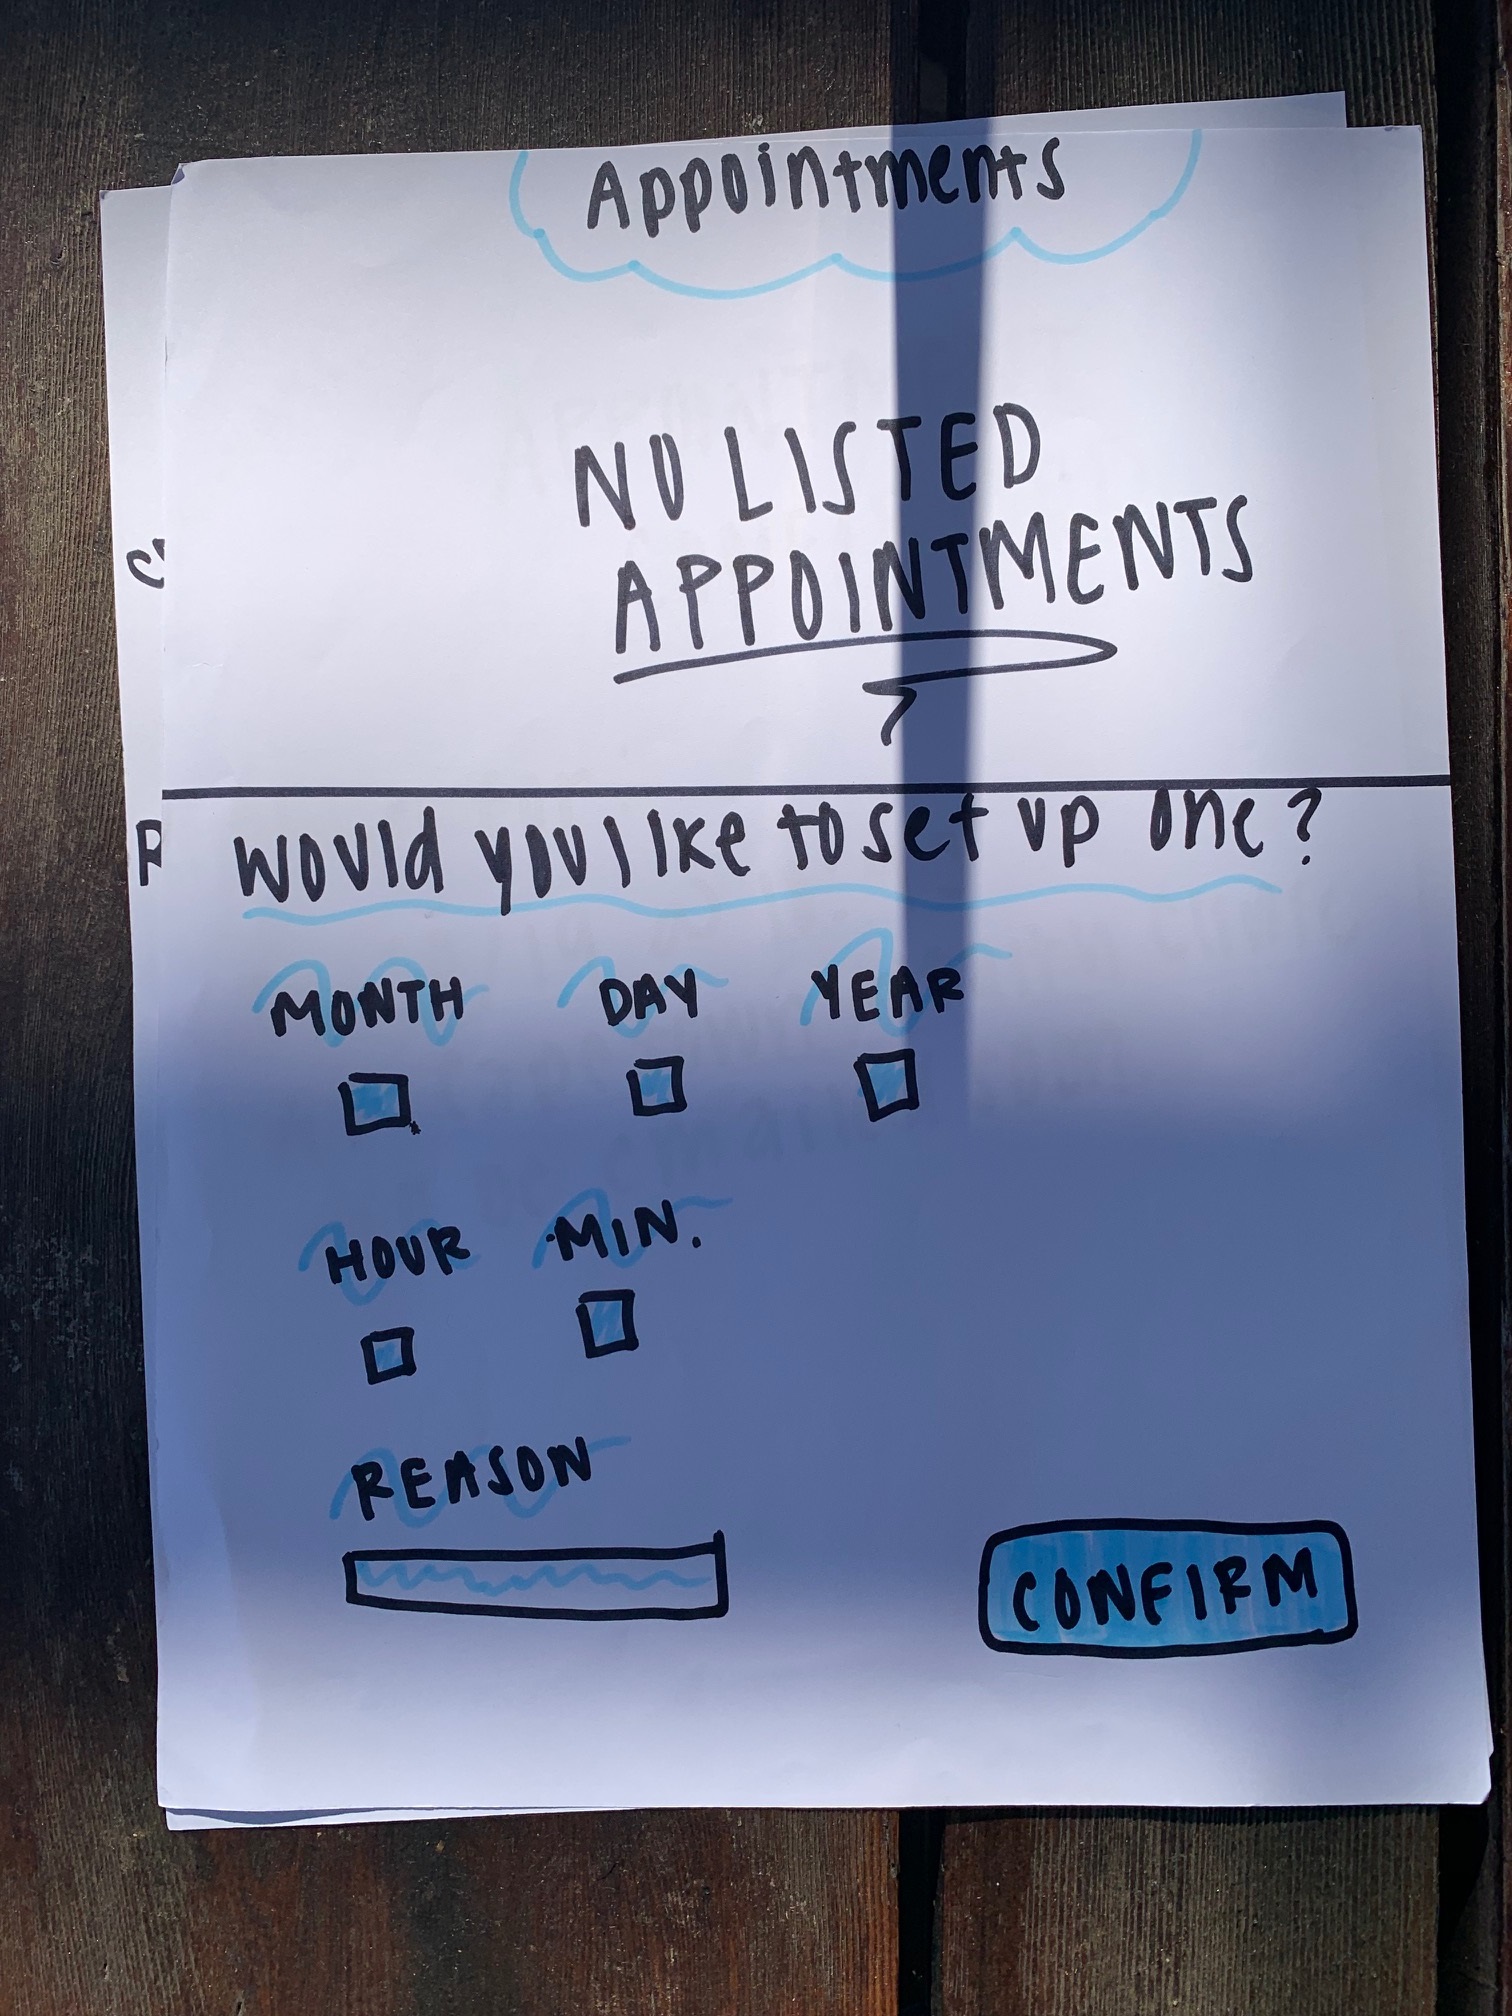 Appointments
NO LISTED
APPOINTMENTS
would you like to set up one?
MONTH DAY YEAR
HOUR MIN.
REASON
CONFIRM